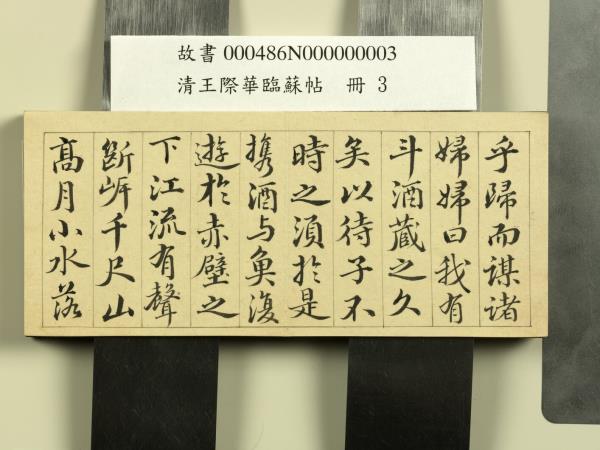 故書 000486N000000003
清王際華臨蘇帖 冊 3
乎歸而謀諸
婦婦曰我有
斗酒藏之久
矣以待子不
時之須於是
携酒与魚復
遊於赤壁之
下江流有聲
斷岍千尺山
髙月小水落